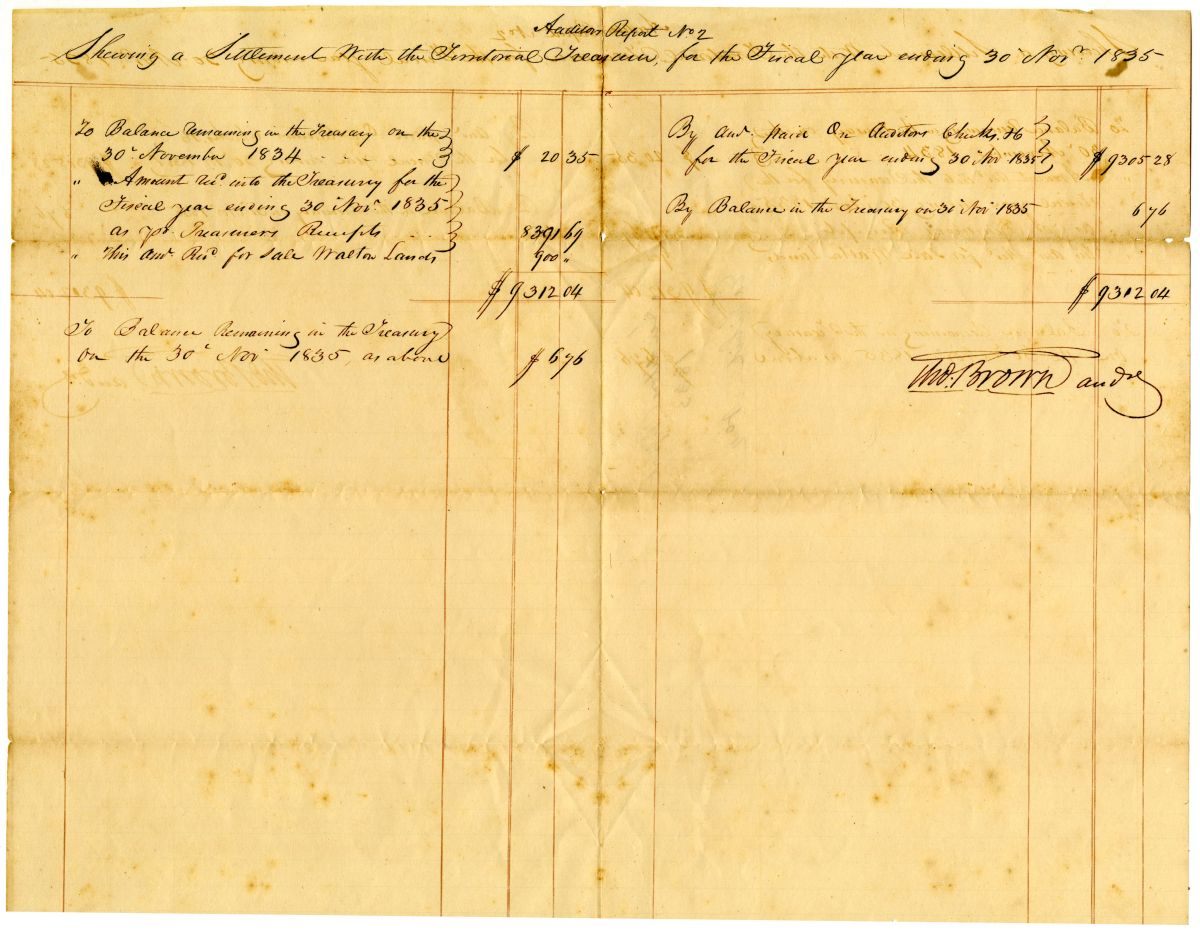 Auditors Report No 2
Shewing a Settlement With the Territorial Treasurer, for the Fiscal year ending 30th Novr. 1835
To Balance remaining in the Treasury on the
30th November 1834 . . . . $ 20 35
" Amount Recd. into the Treasury for the
Fiscal year ending 30th Novr. 1835
as pr. Treasurers Receipts . . . 8391 69
" This amt. Recd. for Sale Walton Lands 900 "
$ 9312 04
To Balance Remaining in the Treasury
on the 30th Novr 1835, as above $ 6 76
By amt. paid On Auditors Checks &c
for the Fiscal year ending 30th Novr 1835 $ 9305 28
By Balance in the Treasury on 30th Novr 1835 6 76
$ 9312 04
Tho. Brown audr